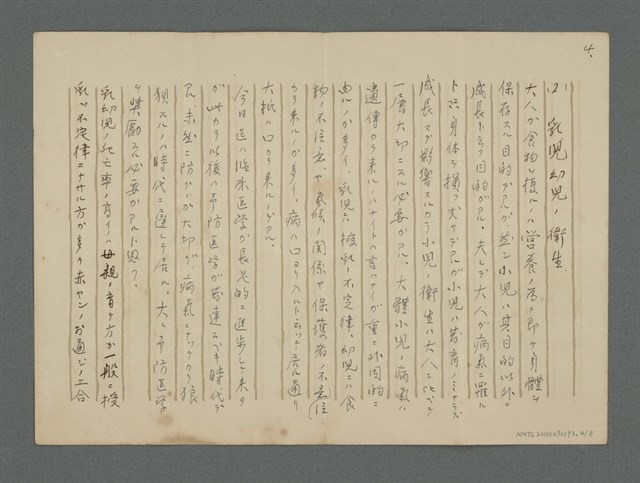 4.
(2) 乳児幼児ノ衛生.
大人ガ食物ヲ採ルノハ営養ノ為メ即チ身體ヲ
保存スル目的デアルガ、小児ハ其目的以外ニ
成長ト云フ目的ガアル。夫レデ大人ガ病気ニ罹ル
ト只身体ヲ損フ丈ケデアルガ小児ハ発育ノミナラズ
成長マデ影響スルカラ小児ノ衛生ハ大人ニ比ベテ
一層大切ニスル必要ガアル。大體小児ノ病気ハ
遺傳カラ来ルノハナイトハ言ハナイガ重ニ外因的ニ
由ルノガ多イ、乳児ハ授乳ノ不定律、幼児ニハ食
物ノ不注意、ヤ気候ノ関係ヤ保護者ノ不注意
カラ来ルノガ多イ、病ハ口ヨリ入ルト云ッテ居ル通リ
大抵ハ口カラ来ルノデアル。
今日迄ハ臨床医学ガ長足的ニ進歩シテ来タ
ガ此カラ以後ハ予防医学ガ発達スベキ時代デ
未然ニ防グノガ大切デ病気ニナッテカラ狼
狽スルノハ時代ニ遅レテ居ル。大ニ予防医学
ヲ奨励スル必要ガアルト思フ。
乳幼児ノ死亡率ノ高イノハ母親ノ育テ方ガ一般ニ授
乳ガ不定律ニナサル方ガ多ク赤ヤンノお通ジノ工合
NMTL20110290192.4/8